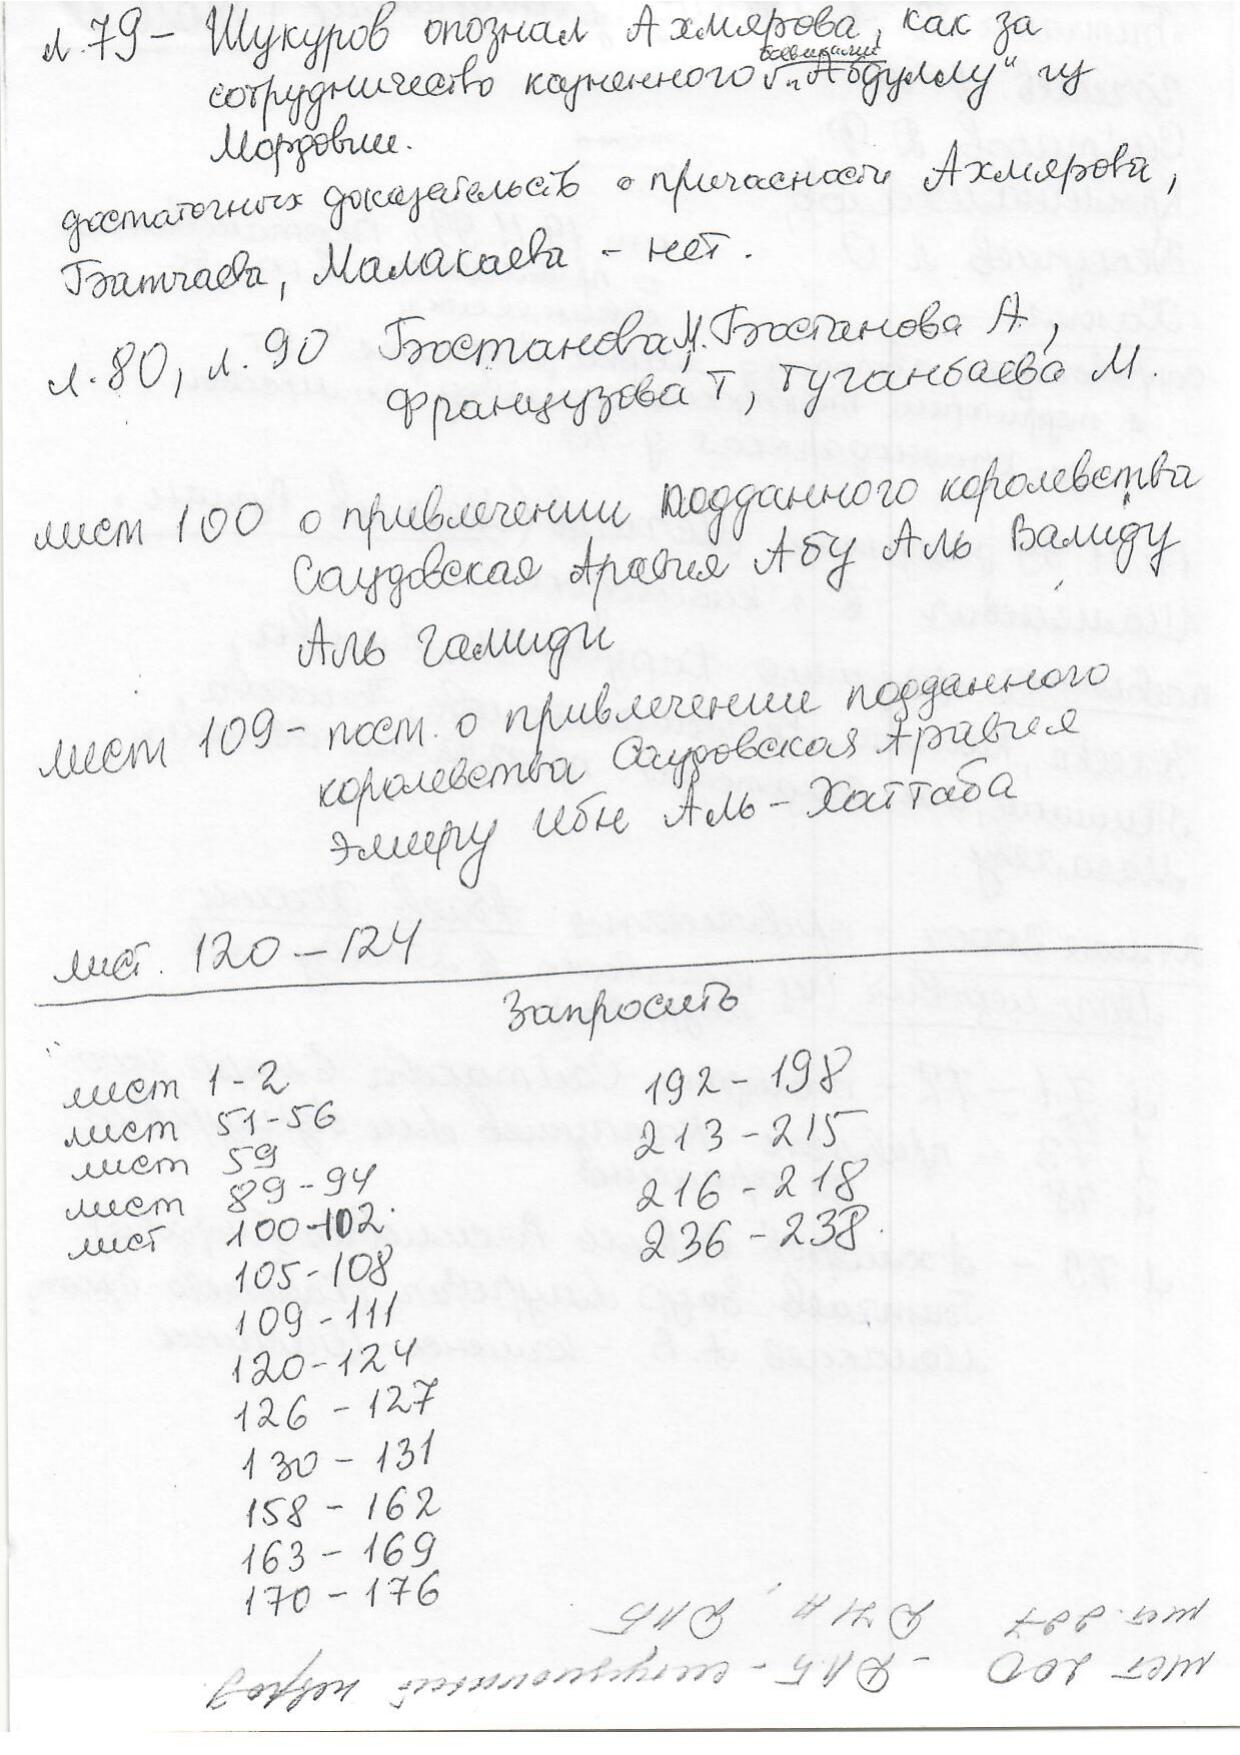 л.79 – Шукуров опознал Ахмярова, как за
боевиками
сотрудничество казненного „Абдуллу" из
Мордовии.
достаточных доказательств о причасности Ахмярова,
Батчаева, Малакаева – нет.
л.80, л.90 Бостанова М. Бостанова А,
Французова Т, Туганбаева М.
лист 100 о привлечении подданного королевства
Саудовская Аравия Абу Аль Валиду
Аль Гамиди
лист 109 – пост. о привлечении подданного
королевства Саудовская Аравия
Эмиру Ибн Аль – Хаттаба
лист. 120 – 124
Запросить
лист 1-2
лист 51-56
лист 59
лист 89-94
лист 100-102.
105-108
109-111
120-124
126 – 127
130 – 131
158 – 162
163 – 169
170 – 176
192 – 198
213 – 215
216 – 218
236 – 238.
лист 200 – ДЛБ – ситуационный невроз